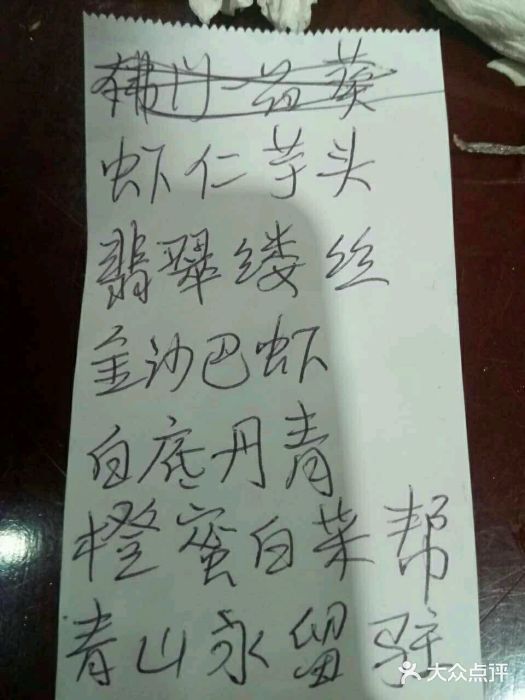 虾仁芋头
翡翠缕丝
金沙巴虾
白底丹青
橙蜜白菜帮
青山永留驻
大众点评